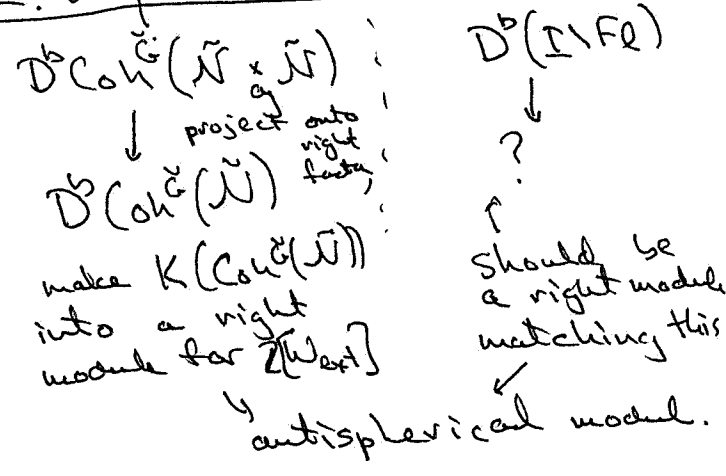 D^b Coh^Ǧ(Ñ ×_g Ñ)
↓ project onto
right
factor
D^b Coh^Ǧ(Ñ)
make K(Coh^Ǧ(Ñ))
into a right
module for Z[W_ext]
D^b(I\Fl)
↓
?
↑
should be
a right module
matching this
antispherical modul.